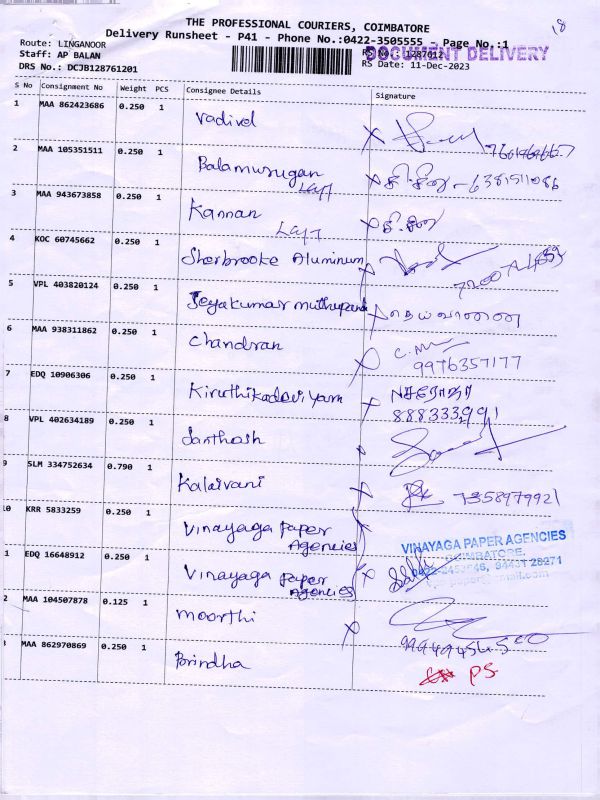 18
THE PROFESSIONAL COURIERS, COIMBATORE
Delivery Runsheet - P41 - Phone No.:0422-3505555 - Page No.:1
Route: LINGANOOR
RS No.: 1287612
DOCUMENT DELIVERY
Staff: AP BALAN
DRS No.: DCJB128761201
RS Date: 11-Dec-2023
S No Consignment No Weight PCS Consignee Details Signature
1 MAA 862423686 0.250 1 Vadivel
2 MAA 105351511 0.250 1 Balamurugan
3 MAA 943673858 0.250 1 Kannan
4 KOC 60745662 0.250 1 Sherbrooke Aluminum
5 VPL 403820124 0.250 1 Jeyakumar
6 MAA 938311862 0.250 1 Chandran
9976357177
7 EDQ 10906306 0.250 1 Kiruthikadevi
888333991
8 VPL 402634189 0.250 1 Santhosh
9 SLM 334752634 0.790 1 Kalaivani 7358979921
10 KRR 5833259 0.250 1 Vinayaga Paper
Agencies
VINAYAGA PAPER AGENCIES
COIMBATORE.
1 EDQ 16648912 0.250 1 Vinayaga Paper
Agencies
2 MAA 104507878 0.125 1 moorthi
3 MAA 862970869 0.250 1 Brindha
PS